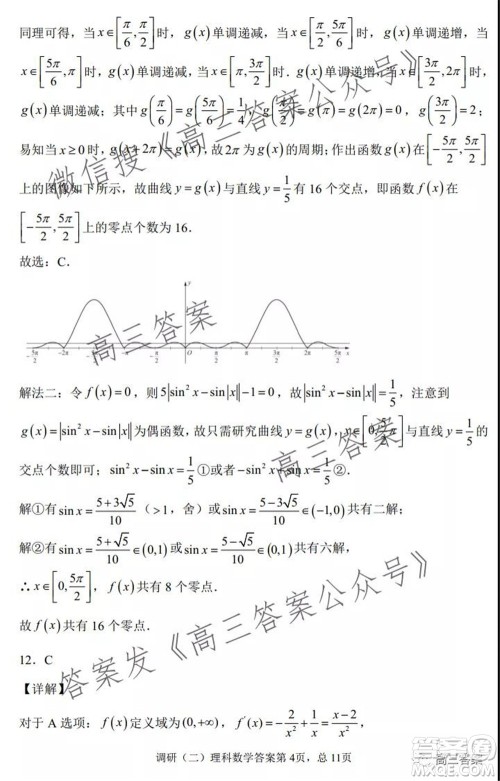 同理可得，当 x∈[π/6, π/2] 时，g(x) 单调递减，当 x∈[π/2, 5π/6] 时，g(x) 单调递增，当
x∈[5π/6, π] 时，g(x) 单调递减，当 x∈[π, 3π/2] 时，g(x) 单调递增，当 x∈[3π/2, 2π] 时，
g(x) 单调递减；其中 g(π/6)=g(5π/6)=1/4，g(π/2)=g(π)=g(2π)=0，g(3π/2)=2；
易知当 x≥0 时，g(x+2π)=g(x)，故 2π 为 g(x) 的周期；作出函数 g(x) 在 [-5π/2, 5π/2]
上的图像如下所示，故曲线 y=g(x) 与直线 y=1/5 有 16 个交点，即函数 f(x) 在
[-5π/2, 5π/2] 上的零点个数为 16．
故选：C．
y
-5π/2 -2π -3π/2 -π -π/2 O π/2 π 3π/2 2π 5π/2 x
解法二：令 f(x)=0，则 5|sin²x-sin|x||-1=0，故 |sin²x-sin|x||=1/5，注意到
g(x)=|sin²x-sin|x|| 为偶函数，故只需研究曲线 y=g(x)，x∈[0, 5π/2] 与直线 y=1/5 的
交点个数即可；sin²x-sinx=1/5 ①或者 -sin²x-sinx=1/5 ②．
解①有 sinx=(5+3√5)/10（>1，舍）或 sinx=(5-3√5)/10∈(-1,0) 共有二解；
解②有 sinx=(5+√5)/10∈(0,1) 或 sinx=(5-√5)/10∈(0,1) 共有六解，
∴x∈[0, 5π/2]，f(x) 共有 8 个零点．
故 f(x) 共有 16 个零点．
12．C
【详解】
对于 A 选项：f(x) 定义域为 (0,+∞)，f′(x)=-2/x²+1/x=(x-2)/x²，
调研（二）理科数学答案第 4页，总 11页
微信搜《高三答案公众号》
高三答案
高三答案
答案发《高三答案公众号》
高三答案